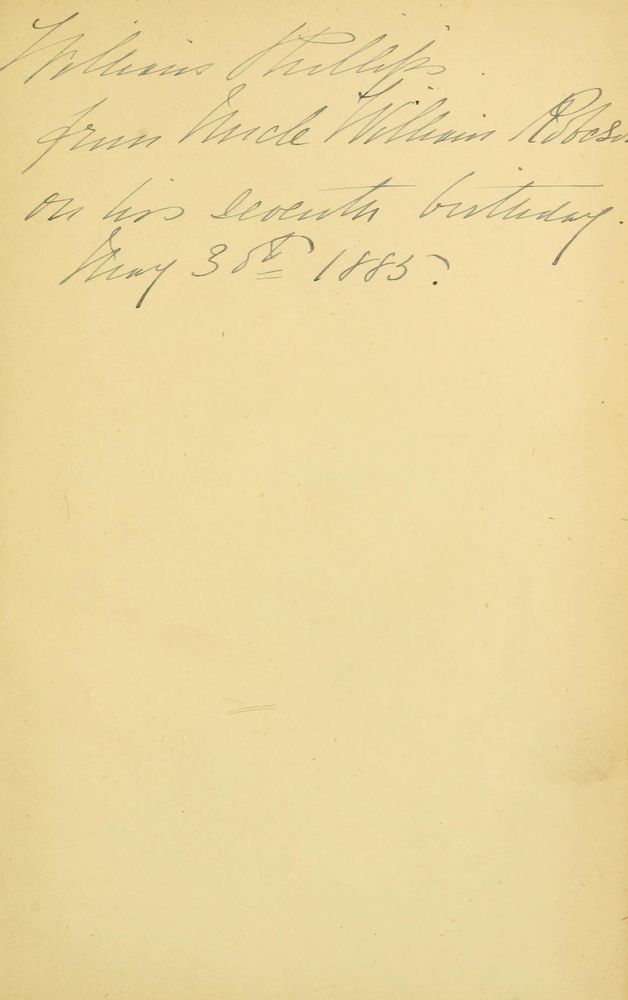 William Phillips.
from Uncle William Robeso
on his seventh birthday.
May 30th 1885.